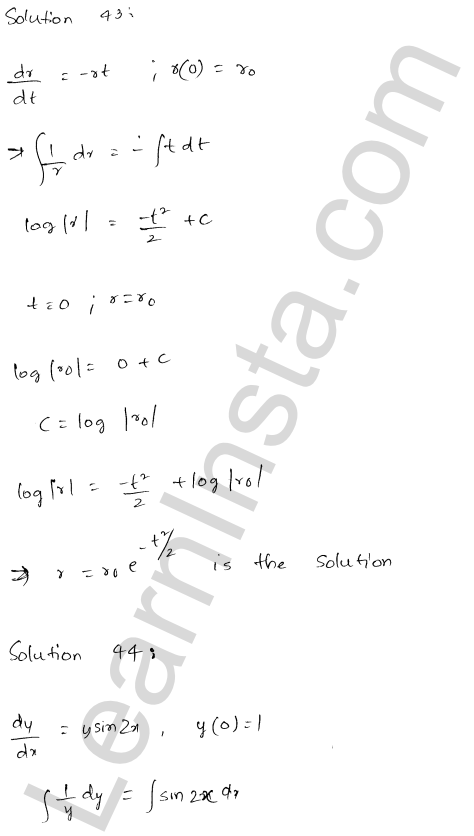 Solution 43:
dr/dt = -rt ; r(0) = r₀
⇒ ∫ 1/r dr = - ∫ t dt
log |r| = -t²/2 + c
t = 0 ; r = r₀
log |r₀| = 0 + c
c = log |r₀|
log |r| = -t²/2 + log |r₀|
⇒ r = r₀ e^(-t²/2) is the solution
Solution 44:
dy/dx = y sin 2x , y(0) = 1
∫ 1/y dy = ∫ sin 2x dx
LearnInsta.com